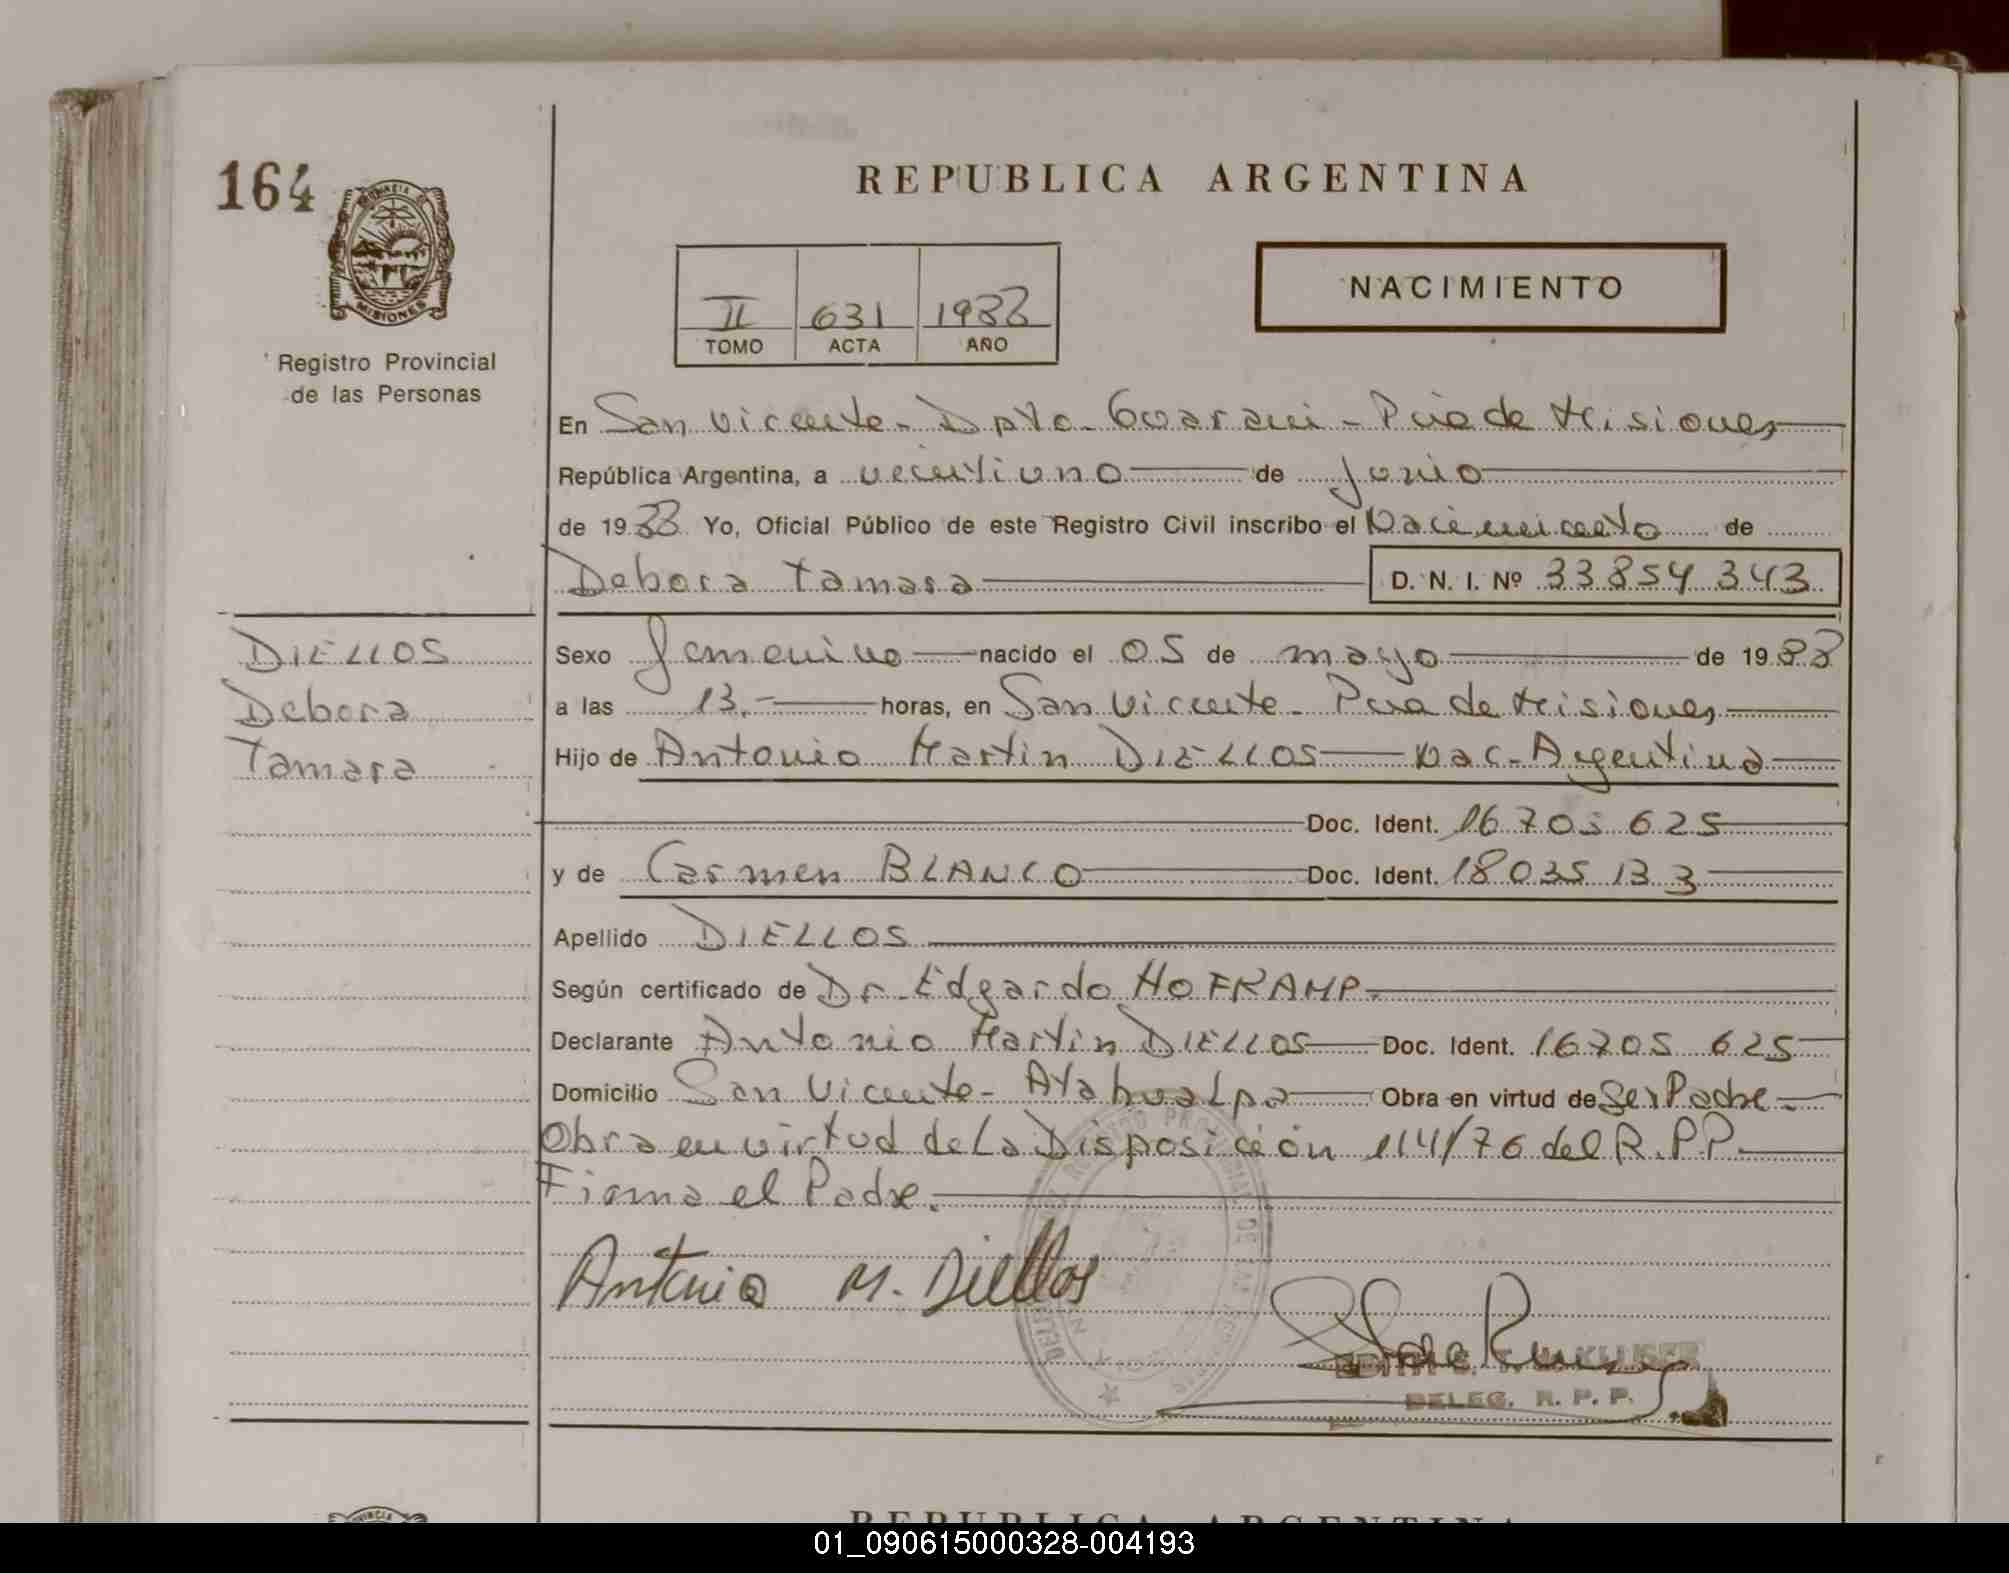 164
REPUBLICA ARGENTINA
PROVINCIA
MISIONES
Registro Provincial
de las Personas
II 631 1988
TOMO ACTA AÑO
NACIMIENTO
En San Vicente - Dpto. Guarani - Pcia de Misiones
República Argentina, a veintiuno de Junio
de 1988 Yo, Oficial Público de este Registro Civil inscribo el Nacimiento de
Debora Tamara D. N. I. Nº 33.854.343
DIELLOS
Debora
Tamara
Sexo femenino nacido el 05 de mayo de 1988
a las 13.- horas, en San Vicente - Pcia de Misiones
Hijo de Antonio Martin DIELLOS Nac. Argentina
Doc. Ident. 16 705 625
y de Carmen BLANCO Doc. Ident. 18 035 133
Apellido DIELLOS
Según certificado de Dr. Edgardo HOFKAMP.
Declarante Antonio Martin DIELLOS Doc. Ident. 16 705 625
Domicilio San Vicente - Atahualpa Obra en virtud de Ser Padre -
Obra en virtud de La Disposición 114/76 del R.P.P.
Firma el Padre.
Antonio M. Diellos
KLUSER
DELEG. R. P. P.
REPUBLICA ARGENTINA
01_090615000328-004193